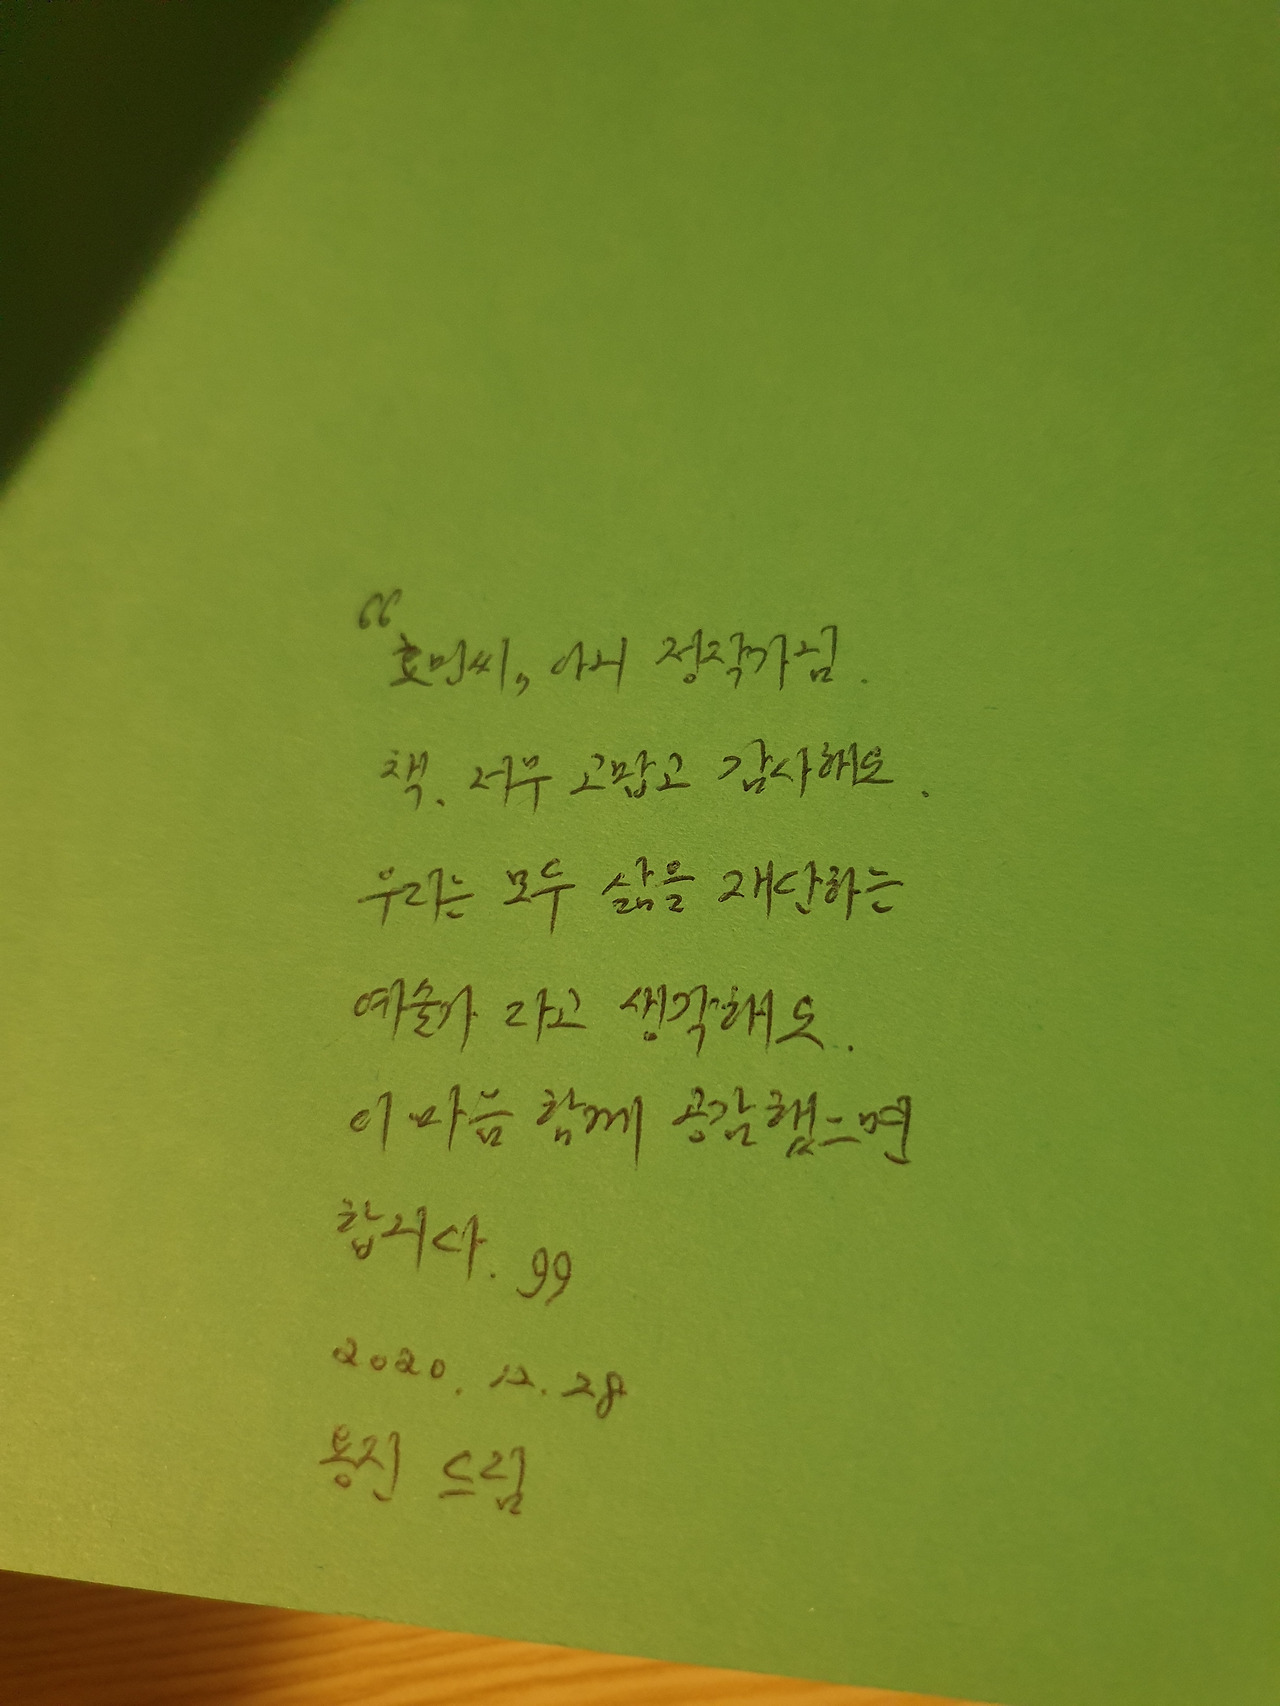 "효민씨, 아니 정작가님.
책. 너무 고맙고 감사해요.
우리는 모두 삶을 재단하는
예술가 라고 생각해요.
이 마음 함께 공감했으면
합니다."
2020. 12. 28
용진 드림